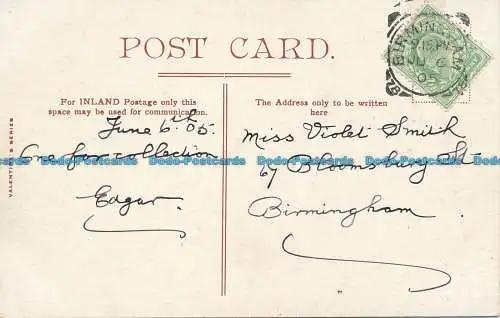 POST CARD.
BIRMINGHAM
JU 6
05
For INLAND Postage only this
space may be used for communication.
The Address only to be written
here
VALENTINE'S SERIES
June 6th 05.
One for collection
Edgar.
Miss Violet Smith
67 Bloomsbury St
Birmingham
Dodo-Postcards Dodo-Postcards Dodo-Postcards Dodo-Postcards Dodo-Postcards